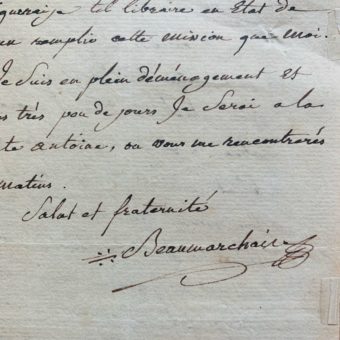 til libraire en Etat de
remplir cette mission que moi.
Je suis en plein déménagement et
très peu de jours Je Serai a la
te antoine, ou vous me rencontrerés
matins.
Salut et fraternité
Beaumarchais